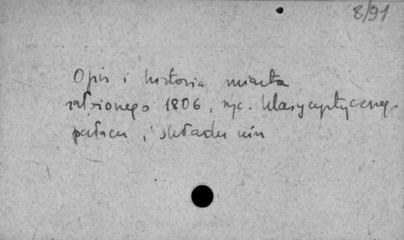 8/91
Opis i historia miasta
założonego 1806, ryc. klasycystycznego
pałacu, i składu win